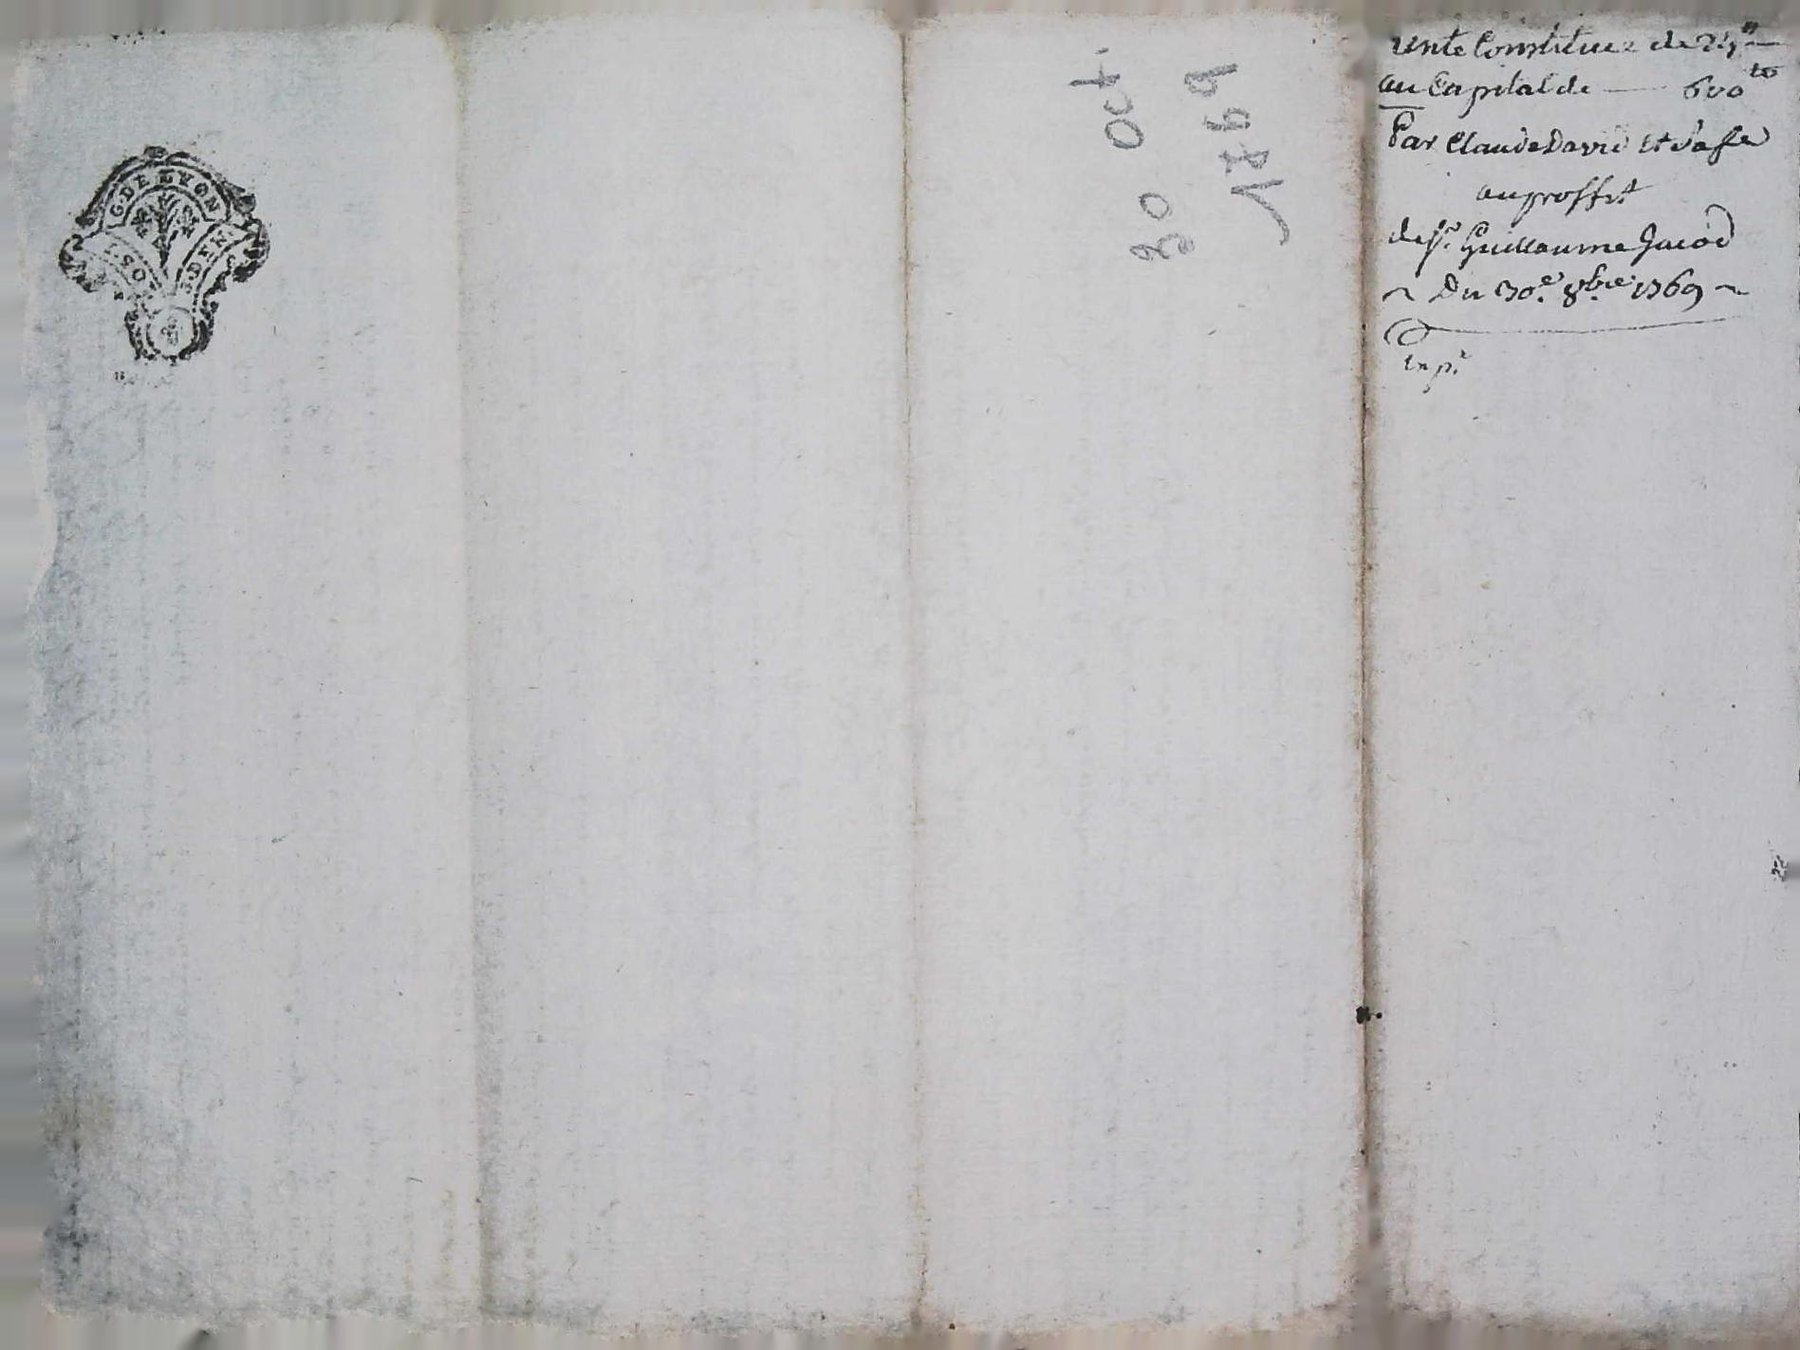 G. DE LYON
1. SOL
8 DEN.
30 oct.
1769
Rente Constituee de 24ᵗᵗ
au Capital de — 600ᵗᵗ
Par Claude David Et Sa fe
au proffit
de Sʳ. Guillaume Jacod
~ Du 30ᵉ. 8bre 1769 ~
Exp.